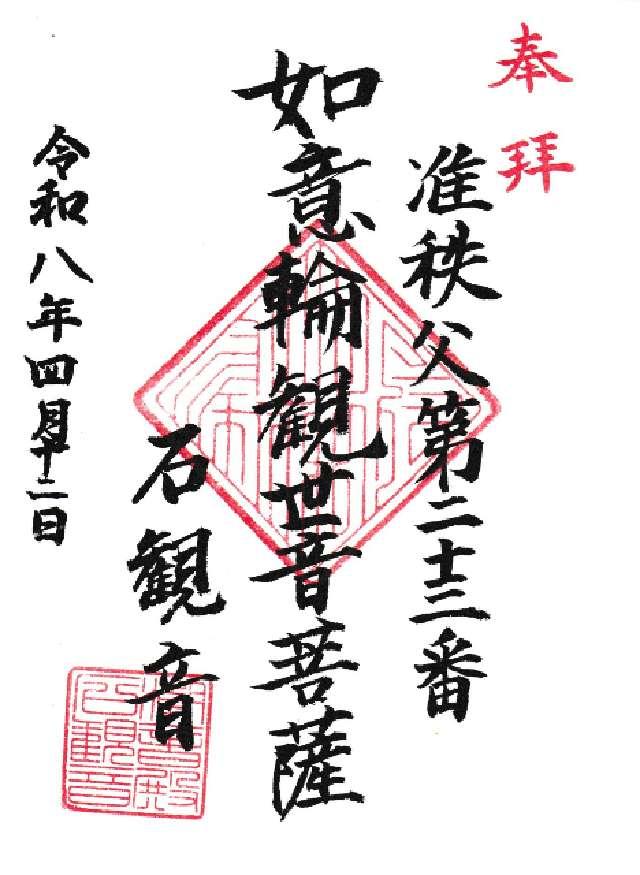 奉拝
准秩父第二十三番
如意輪観世音菩薩
石観音
令和八年四月十二日